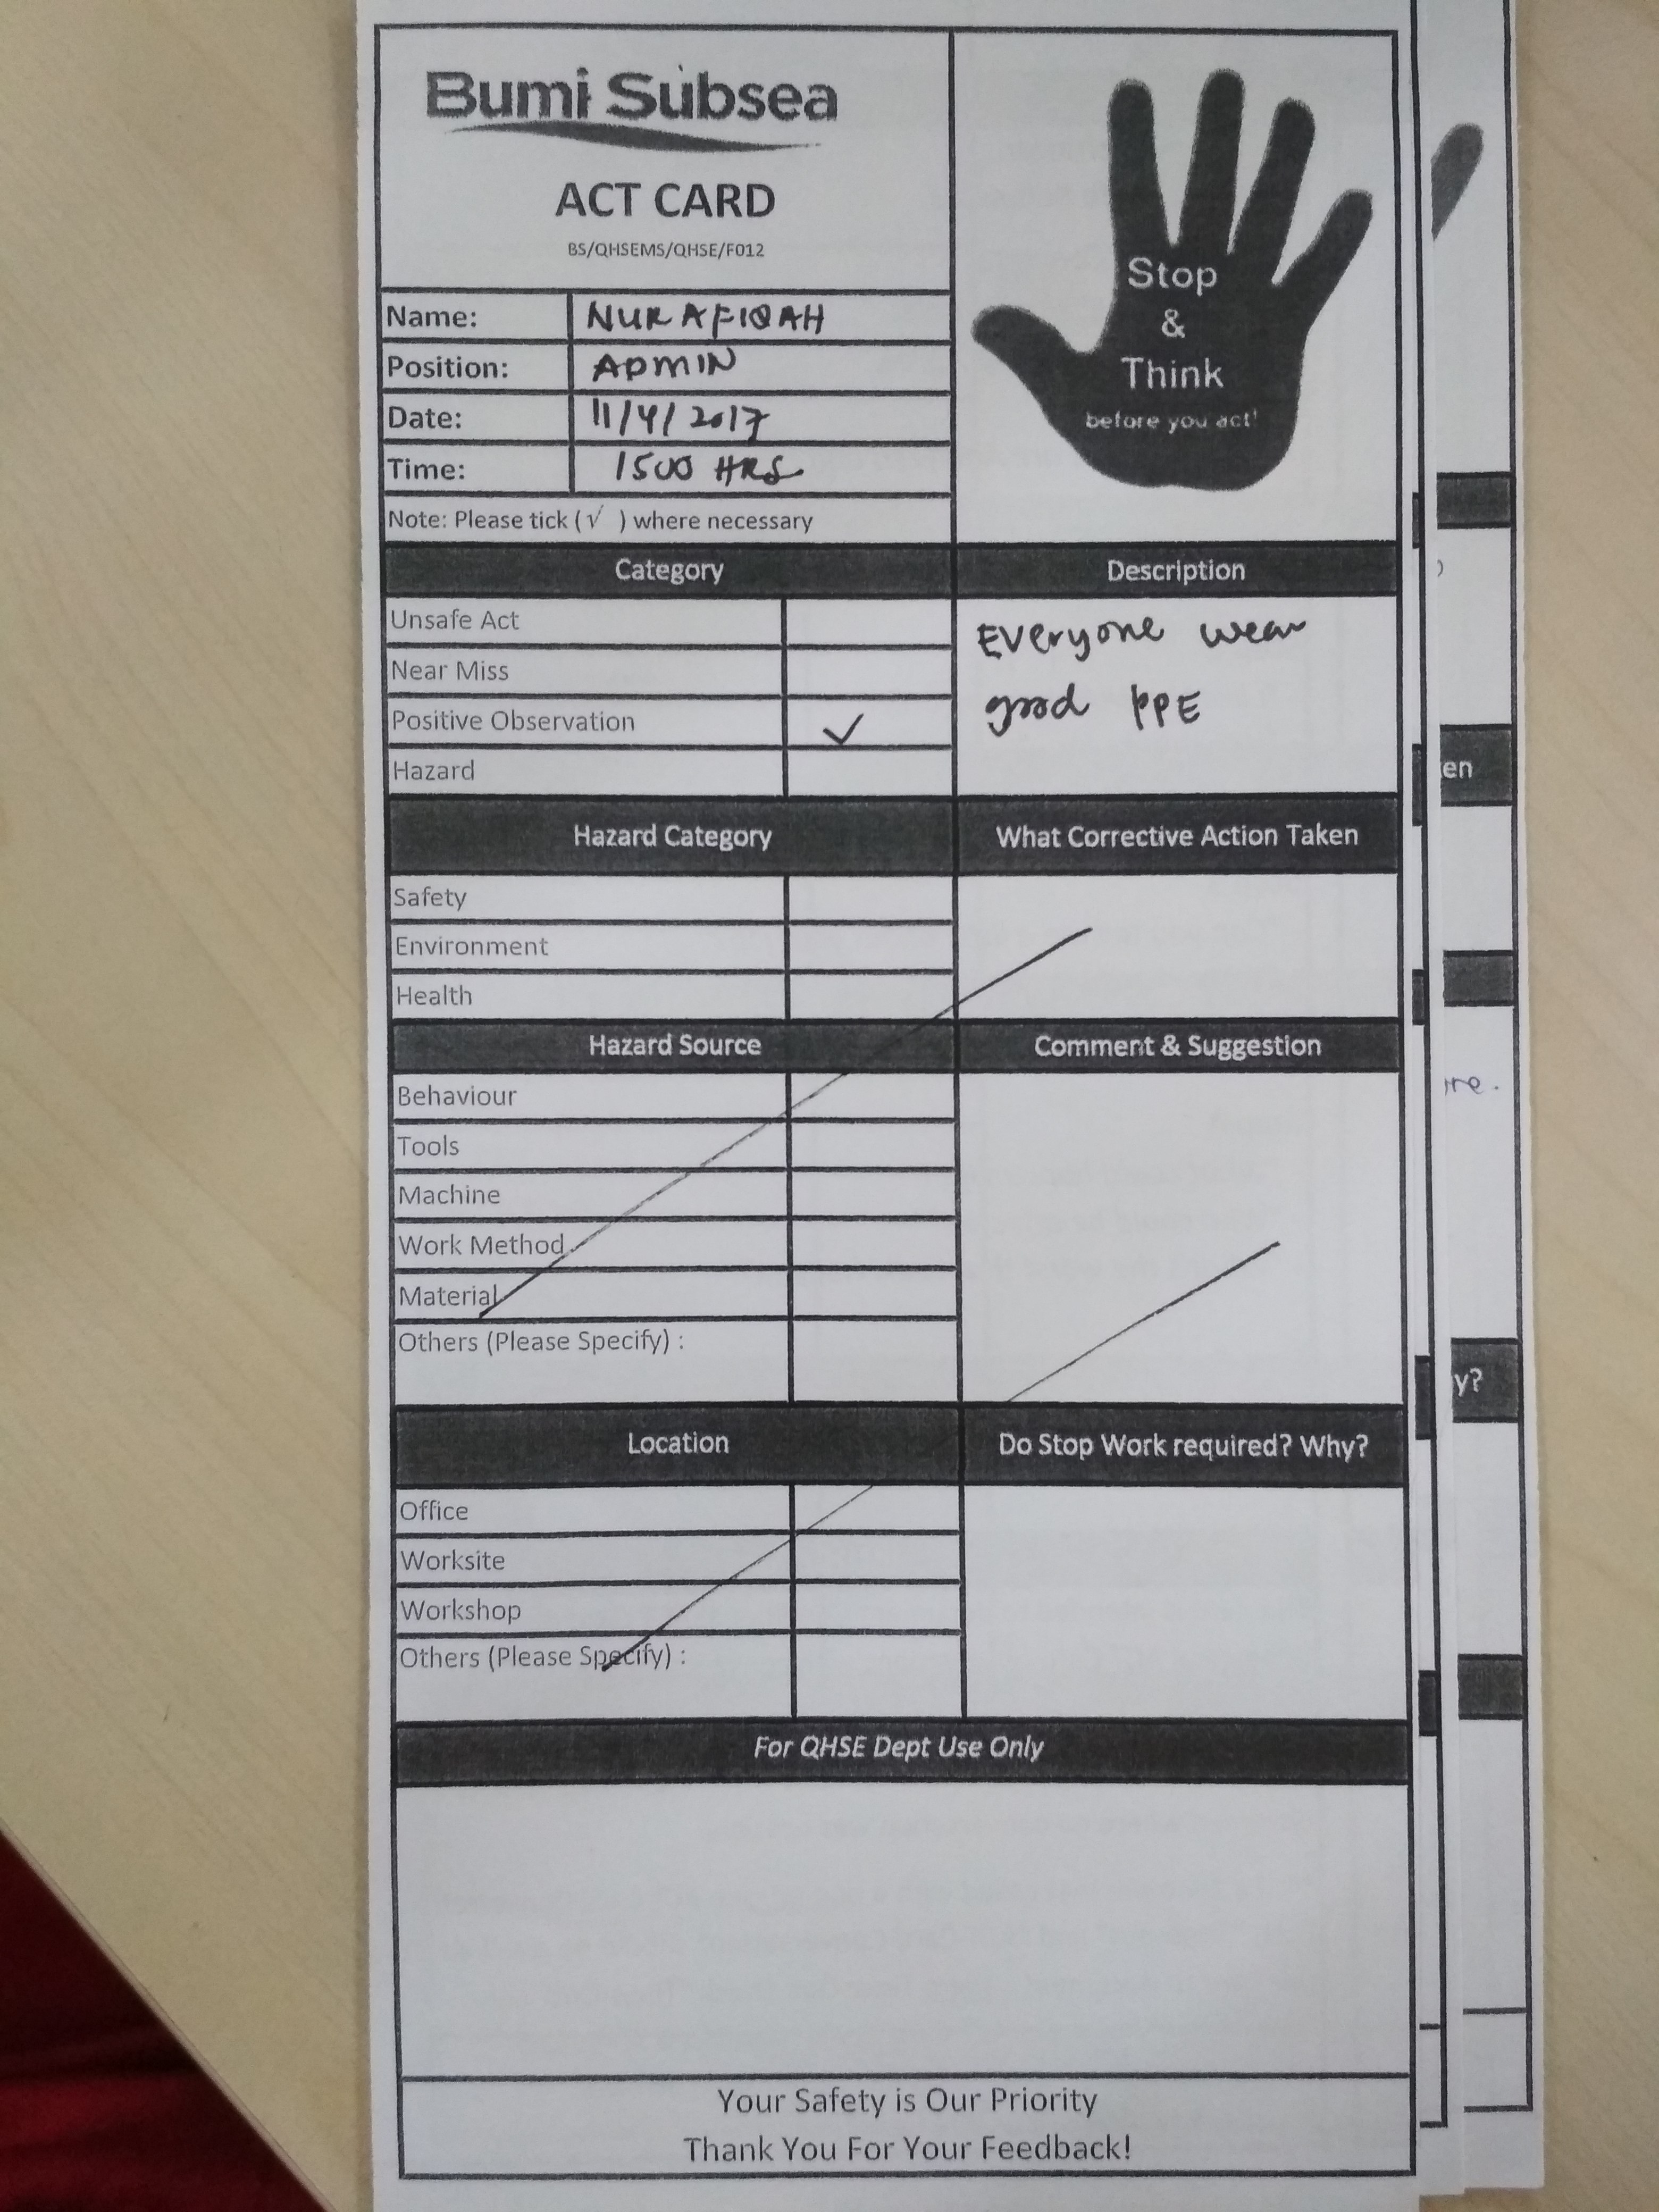 Bumi Subsea
ACT CARD
BS/QHSEMS/QHSE/F012
Stop
&
Think
before you act!
Name: NUR AFIQAH
Position: ADMIN
Date: 11/4/2017
Time: 1500 HRS
Note: Please tick ( √ ) where necessary
Category
Unsafe Act
Near Miss
Positive Observation ✓
Hazard
Description
Everyone wear
good PPE
Hazard Category
Safety
Environment
Health
What Corrective Action Taken
Hazard Source
Behaviour
Tools
Machine
Work Method
Material
Others (Please Specify) :
Comment & Suggestion
Location
Office
Worksite
Workshop
Others (Please Specify) :
Do Stop Work required? Why?
For QHSE Dept Use Only
Your Safety is Our Priority
Thank You For Your Feedback!
en
y?